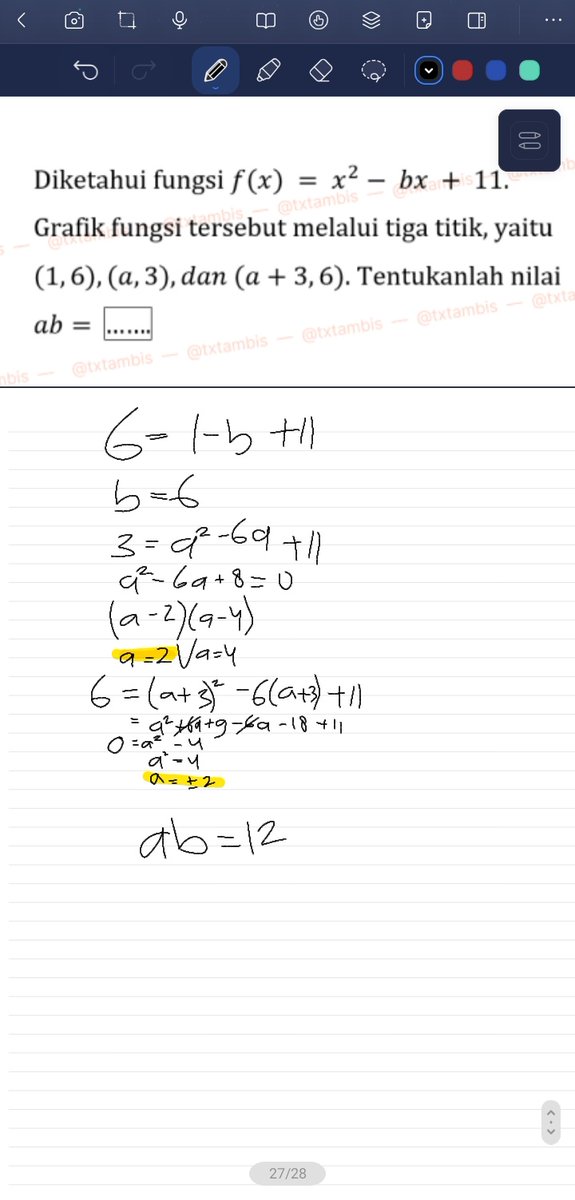 Diketahui fungsi f(x) = x² − bx + 11.
Grafik fungsi tersebut melalui tiga titik, yaitu
(1, 6), (a, 3), dan (a + 3, 6). Tentukanlah nilai
ab = .......
@txtambis — @txtambis — @txtambis — @txtambis
6 = 1 - b + 11
b = 6
3 = a² - 6a + 11
a² - 6a + 8 = 0
(a - 2)(a - 4)
a = 2 V a = 4
6 = (a+3)² - 6(a+3) + 11
= a² + 6a + 9 - 6a - 18 + 11
0 = a² - 4
a² - 4
a = ± 2
ab = 12
27/28